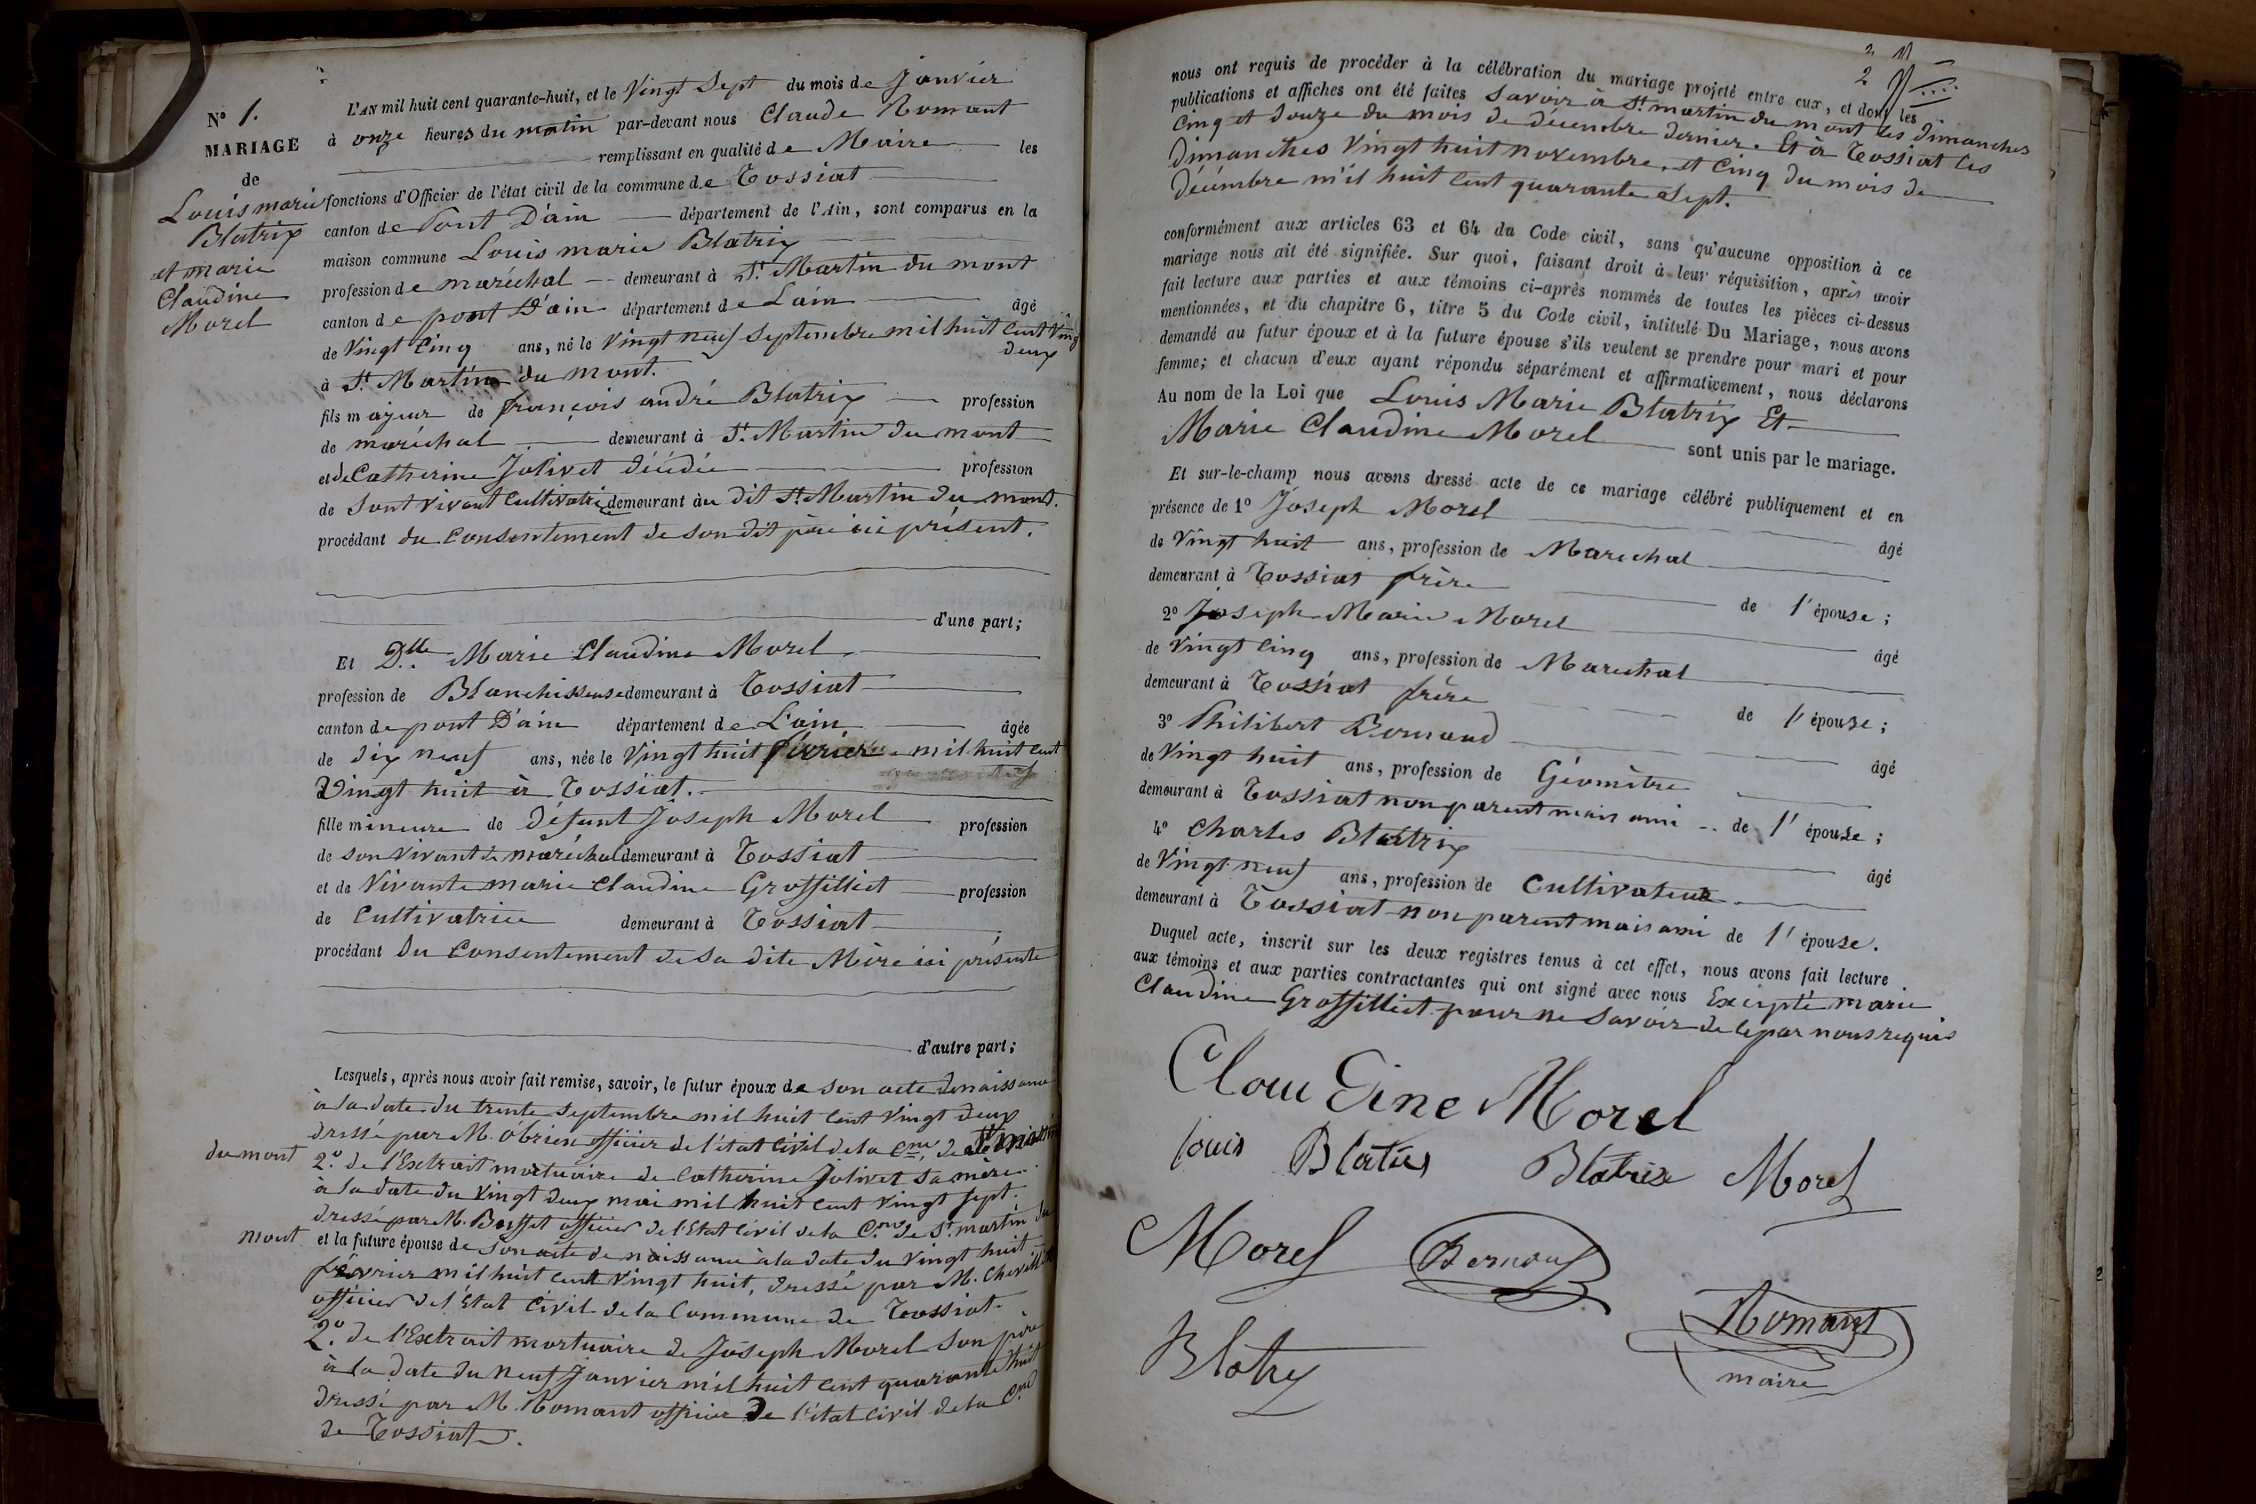 N° 1.
MARIAGE
de
Louis marie
Blatrix
et marie
Claudine
Morel
L'AN mil huit cent quarante-huit, et le Vingt Sept du mois de Janvier
à onze heures du matin par-devant nous Claude Romant
remplissant en qualité de Maire les
fonctions d'Officier de l'état civil de la commune de Tossiat
canton de Pont D'ain département de l'Ain, sont comparus en la
maison commune Louis marie Blatrix
profession de maréchal demeurant à St Martin du mont
canton de pont D'ain département de L'ain âgé
de Vingt Cinq ans, né le Vingt neuf Septembre mil huit Cent Vingt
deux
à St Martin du mont.
fils majeur de françois andré Blatrix profession
de maréchal demeurant à St Martin du mont
et de Catherine Jolivet décédée profession
de Sont vivant Cultivatrice demeurant au dit St Martin du mont.
procédant du Consentement de son dit père ici présent.
d'une part;
Et Dlle Marie Claudine Morel
profession de Blanchisseuse demeurant à Tossiat
canton de pont D'ain département de L'ain âgée
de dix neuf ans, née le Vingt huit février mil huit cent
Vingt huit à Tossiat.
fille mineure de défunt Joseph Morel profession
de son vivant de maréchal demeurant à Tossiat
et de Vivante marie Claudine Groffilliet profession
de Cultivatrice demeurant à Tossiat
procédant Du Consentement de Sa dite Mère ici présente
d'autre part;
Lesquels, après nous avoir fait remise, savoir, le futur époux de son acte de naissance
à la date du trente Septembre mil huit cent vingt deux
dressé par M. O'brien officier de l'état Civil de la Cne de St Martin
du mont 2° de l'Extrait mortuaire de Catherine Jolivet Sa mère
à la date du Vingt deux mai mil huit cent vingt sept.
dressé par M. officier de l'Etat Civil de la Cne de St martin du
mont et la future épouse de Son acte de naissance à la date du Vingt huit
février mil huit cent vingt huit, dressé par M.
officier de l'Etat Civil de la Commune de Tossiat.
2° de l'Extrait mortuaire de Joseph Morel Son père
à la date du neuf Janvier mil huit cent quarante huit
dressé par M. Romant officier De l'état Civil de la Cne
de Tossiat.
nous ont requis de procéder à la célébration du mariage projeté entre eux, et dont les
publications et affiches ont été faites Savoir à St martin du mont les dimanches
Cinq et Douze du mois de décembre dernier. Et à Tossiat les
dimanches Vingt huit novembre, et Cinq du mois de
décembre mil huit cent quarante Sept.
conformément aux articles 63 et 64 du Code civil, sans qu'aucune opposition à ce
mariage nous ait été signifiée. Sur quoi, faisant droit à leur réquisition, après avoir
fait lecture aux parties et aux témoins ci-après nommés de toutes les pièces ci-dessus
mentionnées, et du chapitre 6, titre 5 du Code civil, intitulé Du Mariage, nous avons
demandé au futur époux et à la future épouse s'ils veulent se prendre pour mari et pour
femme; et chacun d'eux ayant répondu séparément et affirmativement, nous déclarons
Au nom de la Loi que Louis Marie Blatrix Et
Marie Claudine Morel sont unis par le mariage.
Et sur-le-champ nous avons dressé acte de ce mariage célébré publiquement et en
présence de 1° Joseph Morel âgé
de Vingt huit ans, profession de Marechal
demeurant à Tossiat frère de l'épouse;
2° Joseph Marie Morel âgé
de Vingt Cinq ans, profession de Marechal
demeurant à Tossiat frère de l'épouse;
3° Philibert Bernaud âgé
de Vingt huit ans, profession de Géomètre
demeurant à Tossiat non parent mais ami de l'épouse;
4° Charles Blatrix âgé
de Vingt neuf ans, profession de Cultivateur
demeurant à Tossiat non parent mais ami de l'épouse.
Duquel acte, inscrit sur les deux registres tenus à cet effet, nous avons fait lecture
aux témoins et aux parties contractantes qui ont signé avec nous Excepté marie
Claudine Groffilliet pour ne Savoir de le par nous requis
Claudine Morel
louis Blatrix Blatrix Morel
Morel Bernaud
Romant
Blatrix maire